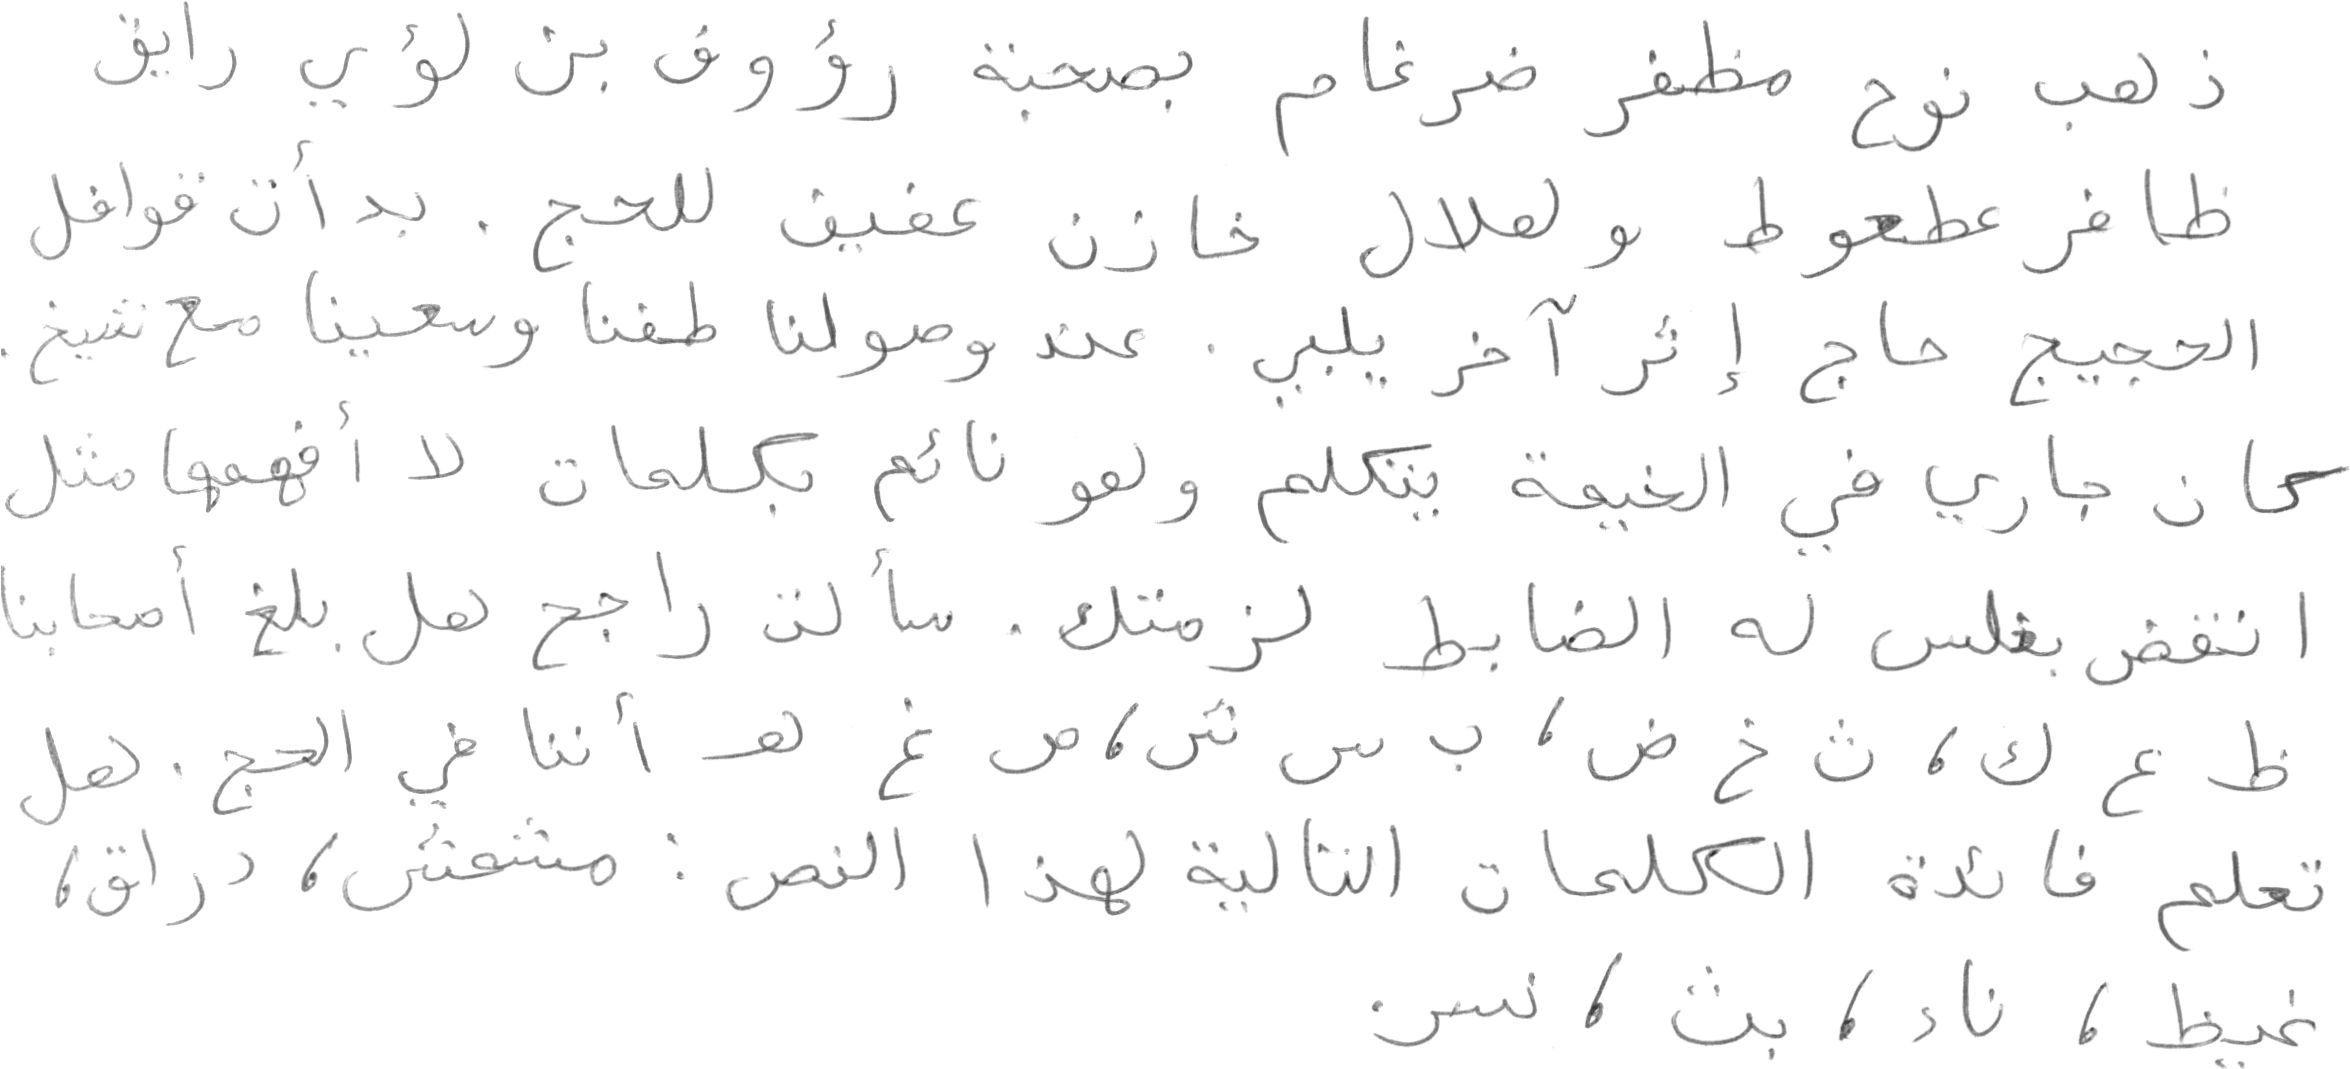 ذهب نوح مظفر ضرغام بصحبة رؤوف بن لؤي رايق
ظافر عطعوط و هلال خازن عفيف للحج . بدأت قوافل
الحجيج حاج إثر آخر يلبي . عند وصولنا طفنا وسعينا مع شيخ .
كان جاري في الخيمة يتكلم وهو نائم بكلمات لا أفهمها مثل
انقض بغلس له الضابط لزمتك . سألت راجح هل بلغ أصحابنا
ظ ع ك، ث خ ض، ب س ش، ص غ هـ أننا في الحج . هل
تعلم فائدة الكلمات التالية لهذا النص : مشمش، دراق،
غيظ ، ناء ، بث ، نسر .